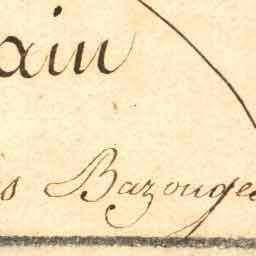 ain
s Bazouge